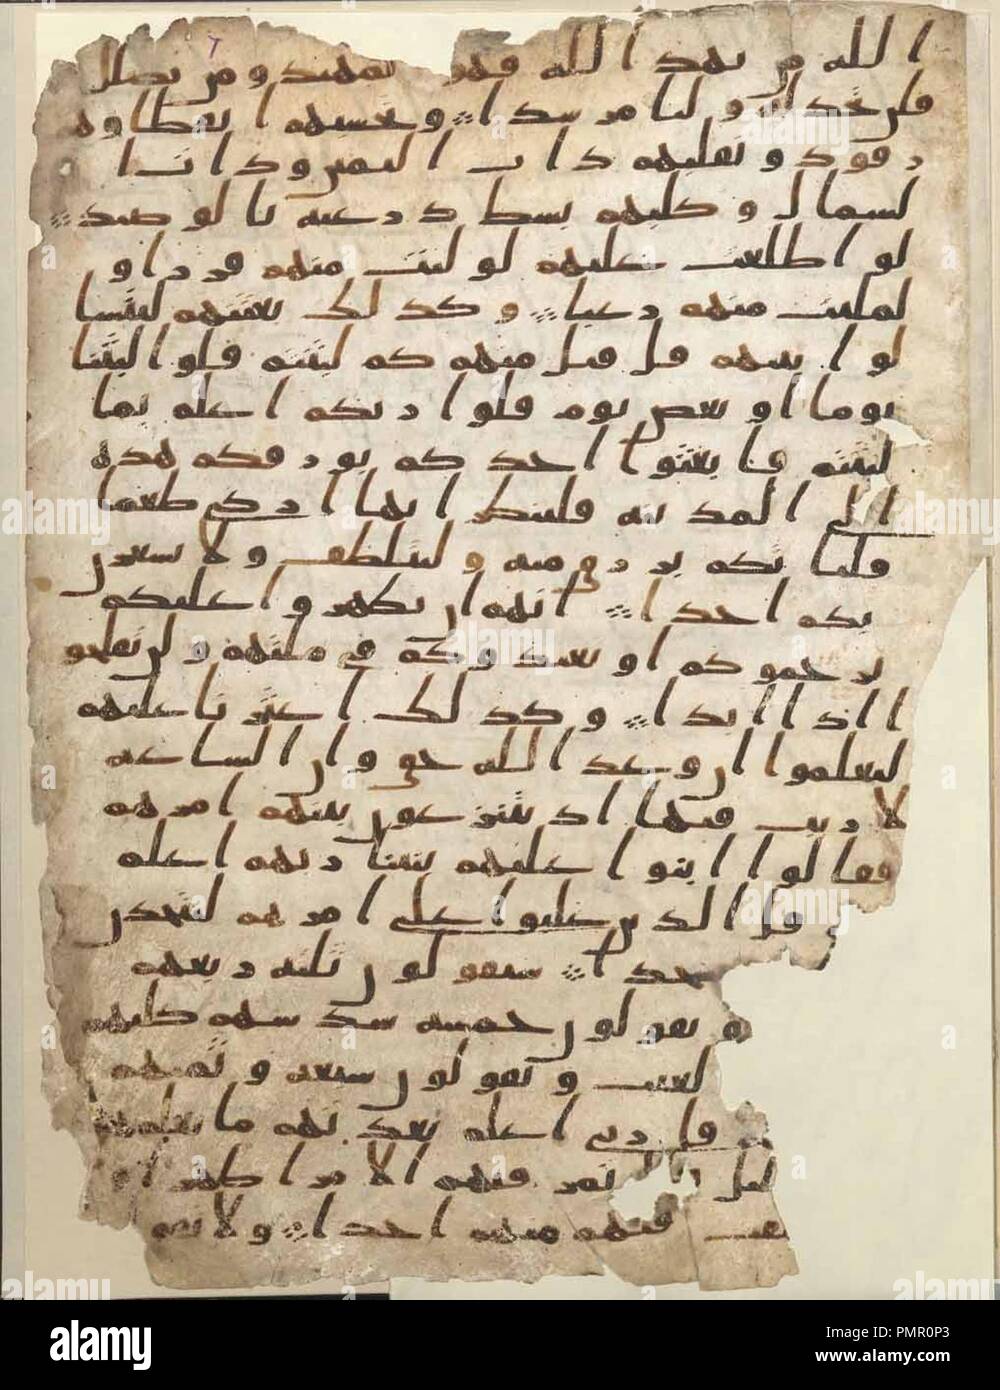 الله من يهد الله فهو المهتد ومن يضلل
فلن تجد له وليا مرشدا وتحسبهم ايقظا وهم
رقود ونقلبهم ذات اليمين وذات ا
لشمال وكلبهم بسط ذرعيه بالوصيد
لو اطلعت عليهم لوليت منهم فررا و
لمليت منهم رعبا وكذلك بعثنهم ليتسا
لوا بينهم قل قيل منهم كم لبثتم قلوا لبثنا
يوما او بعض يوم قلوا ربكم اعلم بما
لبثتم فابعثوا احدكم بورقكم هذه
الى المدينه فلينظر ايها ازكى طعما
فلياتكم برزق منه وليتلطف ولا يشعرن
بكم احدا انهم ان يظهروا عليكم
يرجموكم او يعيدوكم في ملتهم ولن تفلحو
ا اذا ابدا وكذلك اعثرنا عليهم
ليعلموا ان وعد الله حق وان الساعه
لا ريب فيها اذ يتنزعون بينهم امرهم
فقالوا ابنوا عليهم بنينا ربهم اعلم
قل الذين غلبوا على امرهم لنتخذن
سجدا سيقولون ثلثه ربعهم
ويقولون خمسه سدسهم كلبهم
لغيب ويقولون سبعه وثمنهم
قل ربي اعلم بعدتهم ما يعلمهم
ليل تمر فيهم الا مرا ظهرا
فيهم منهم احدا ولا تقو
alamy
Image ID: PMR0P3
www.alamy.com